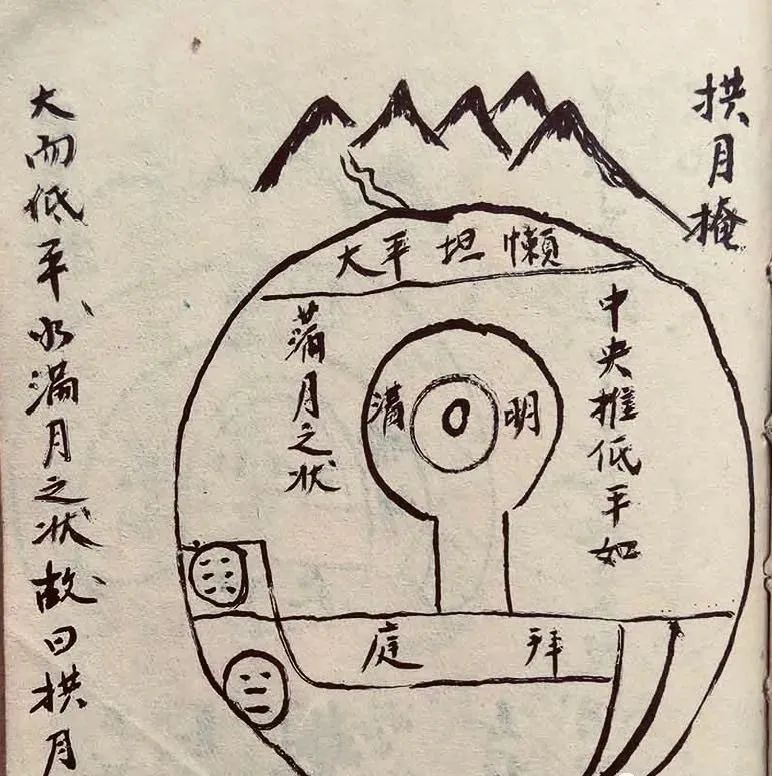 拱月掩
懶坦平大
中央推低平如
滿月之状
明溝
拜庭
大而低平、如滿月之状故曰拱月